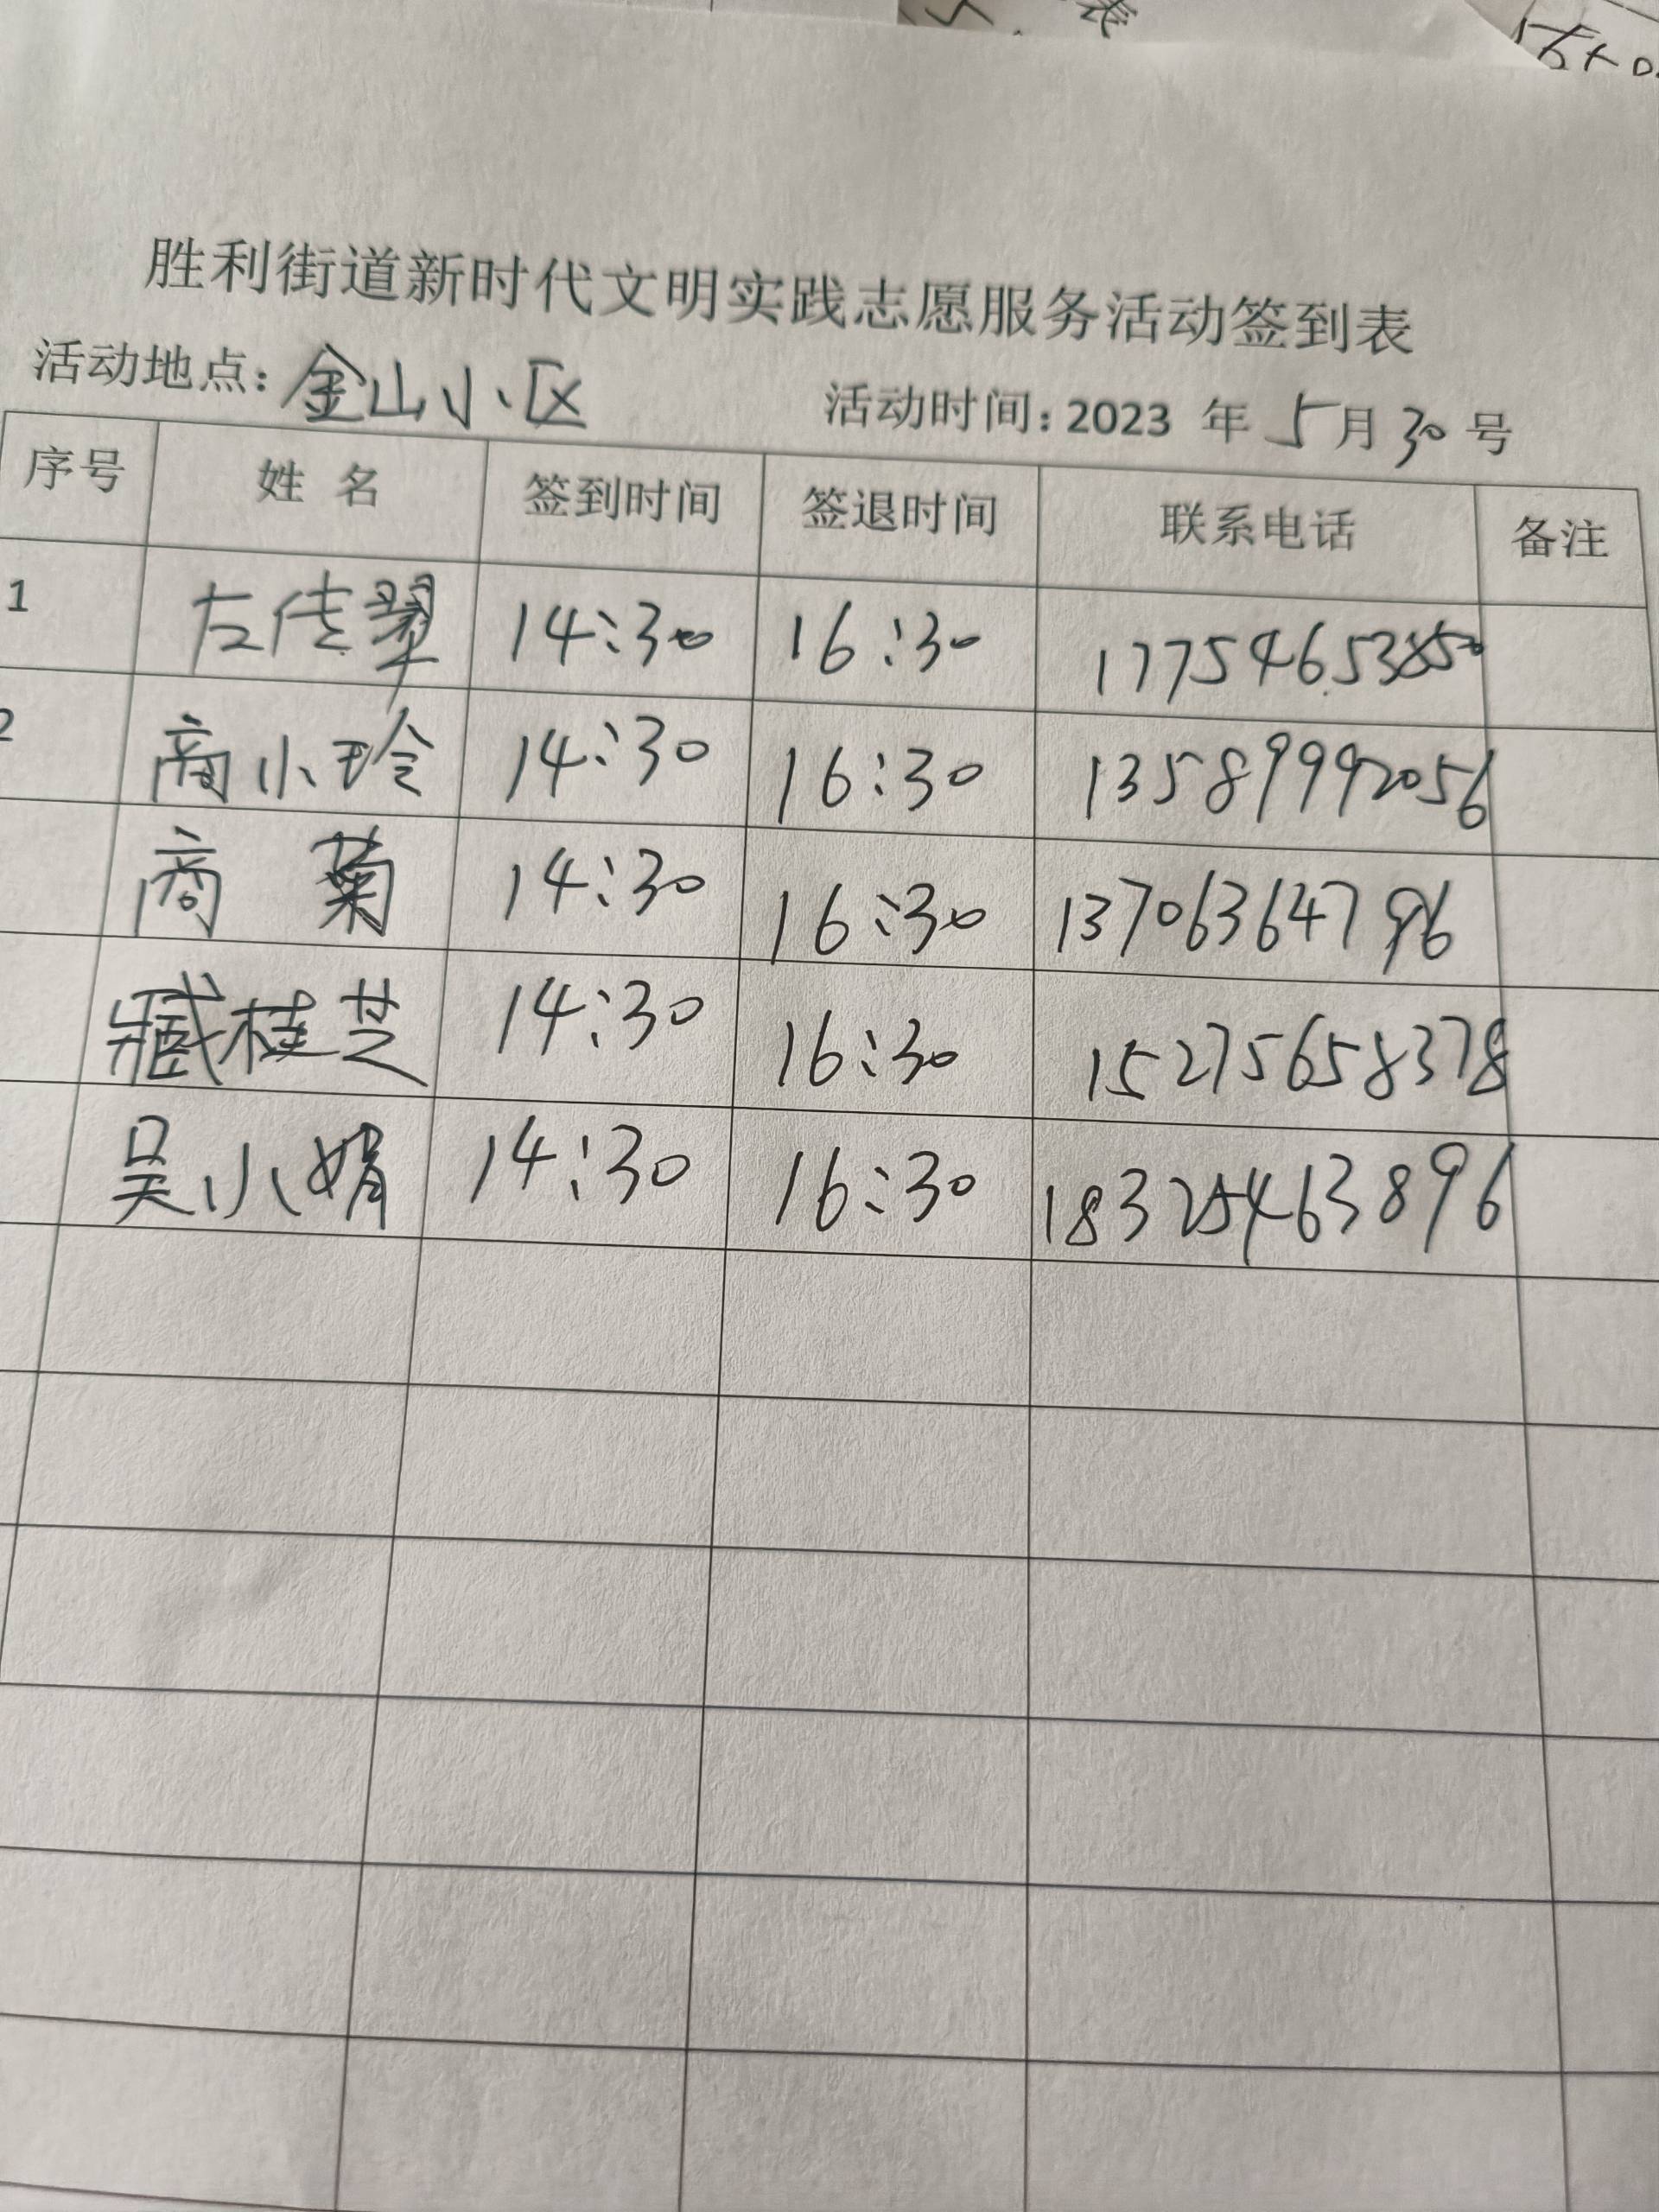 胜利街道新时代文明实践志愿服务活动签到表
活动地点：金山小区 活动时间：2023 年 5月 30 号
序号 姓 名 签到时间 签退时间 联系电话 备注
1 左传翠 14:30 16:30
2 商小玲 14:30 16:30 13589992056
商 菊 14:30 16:30 13706364796
臧桂芝 14:30 16:30 15275658378
吴小娟 14:30 16:30 18325463896